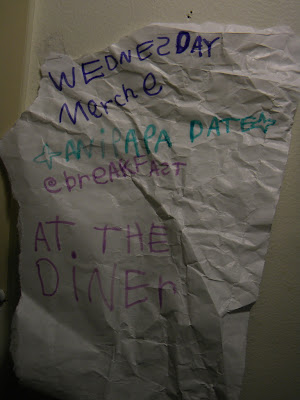 WEDNESDAY
March
☆ DATE ☆
@breAKFAST
AT THE
DiNEr